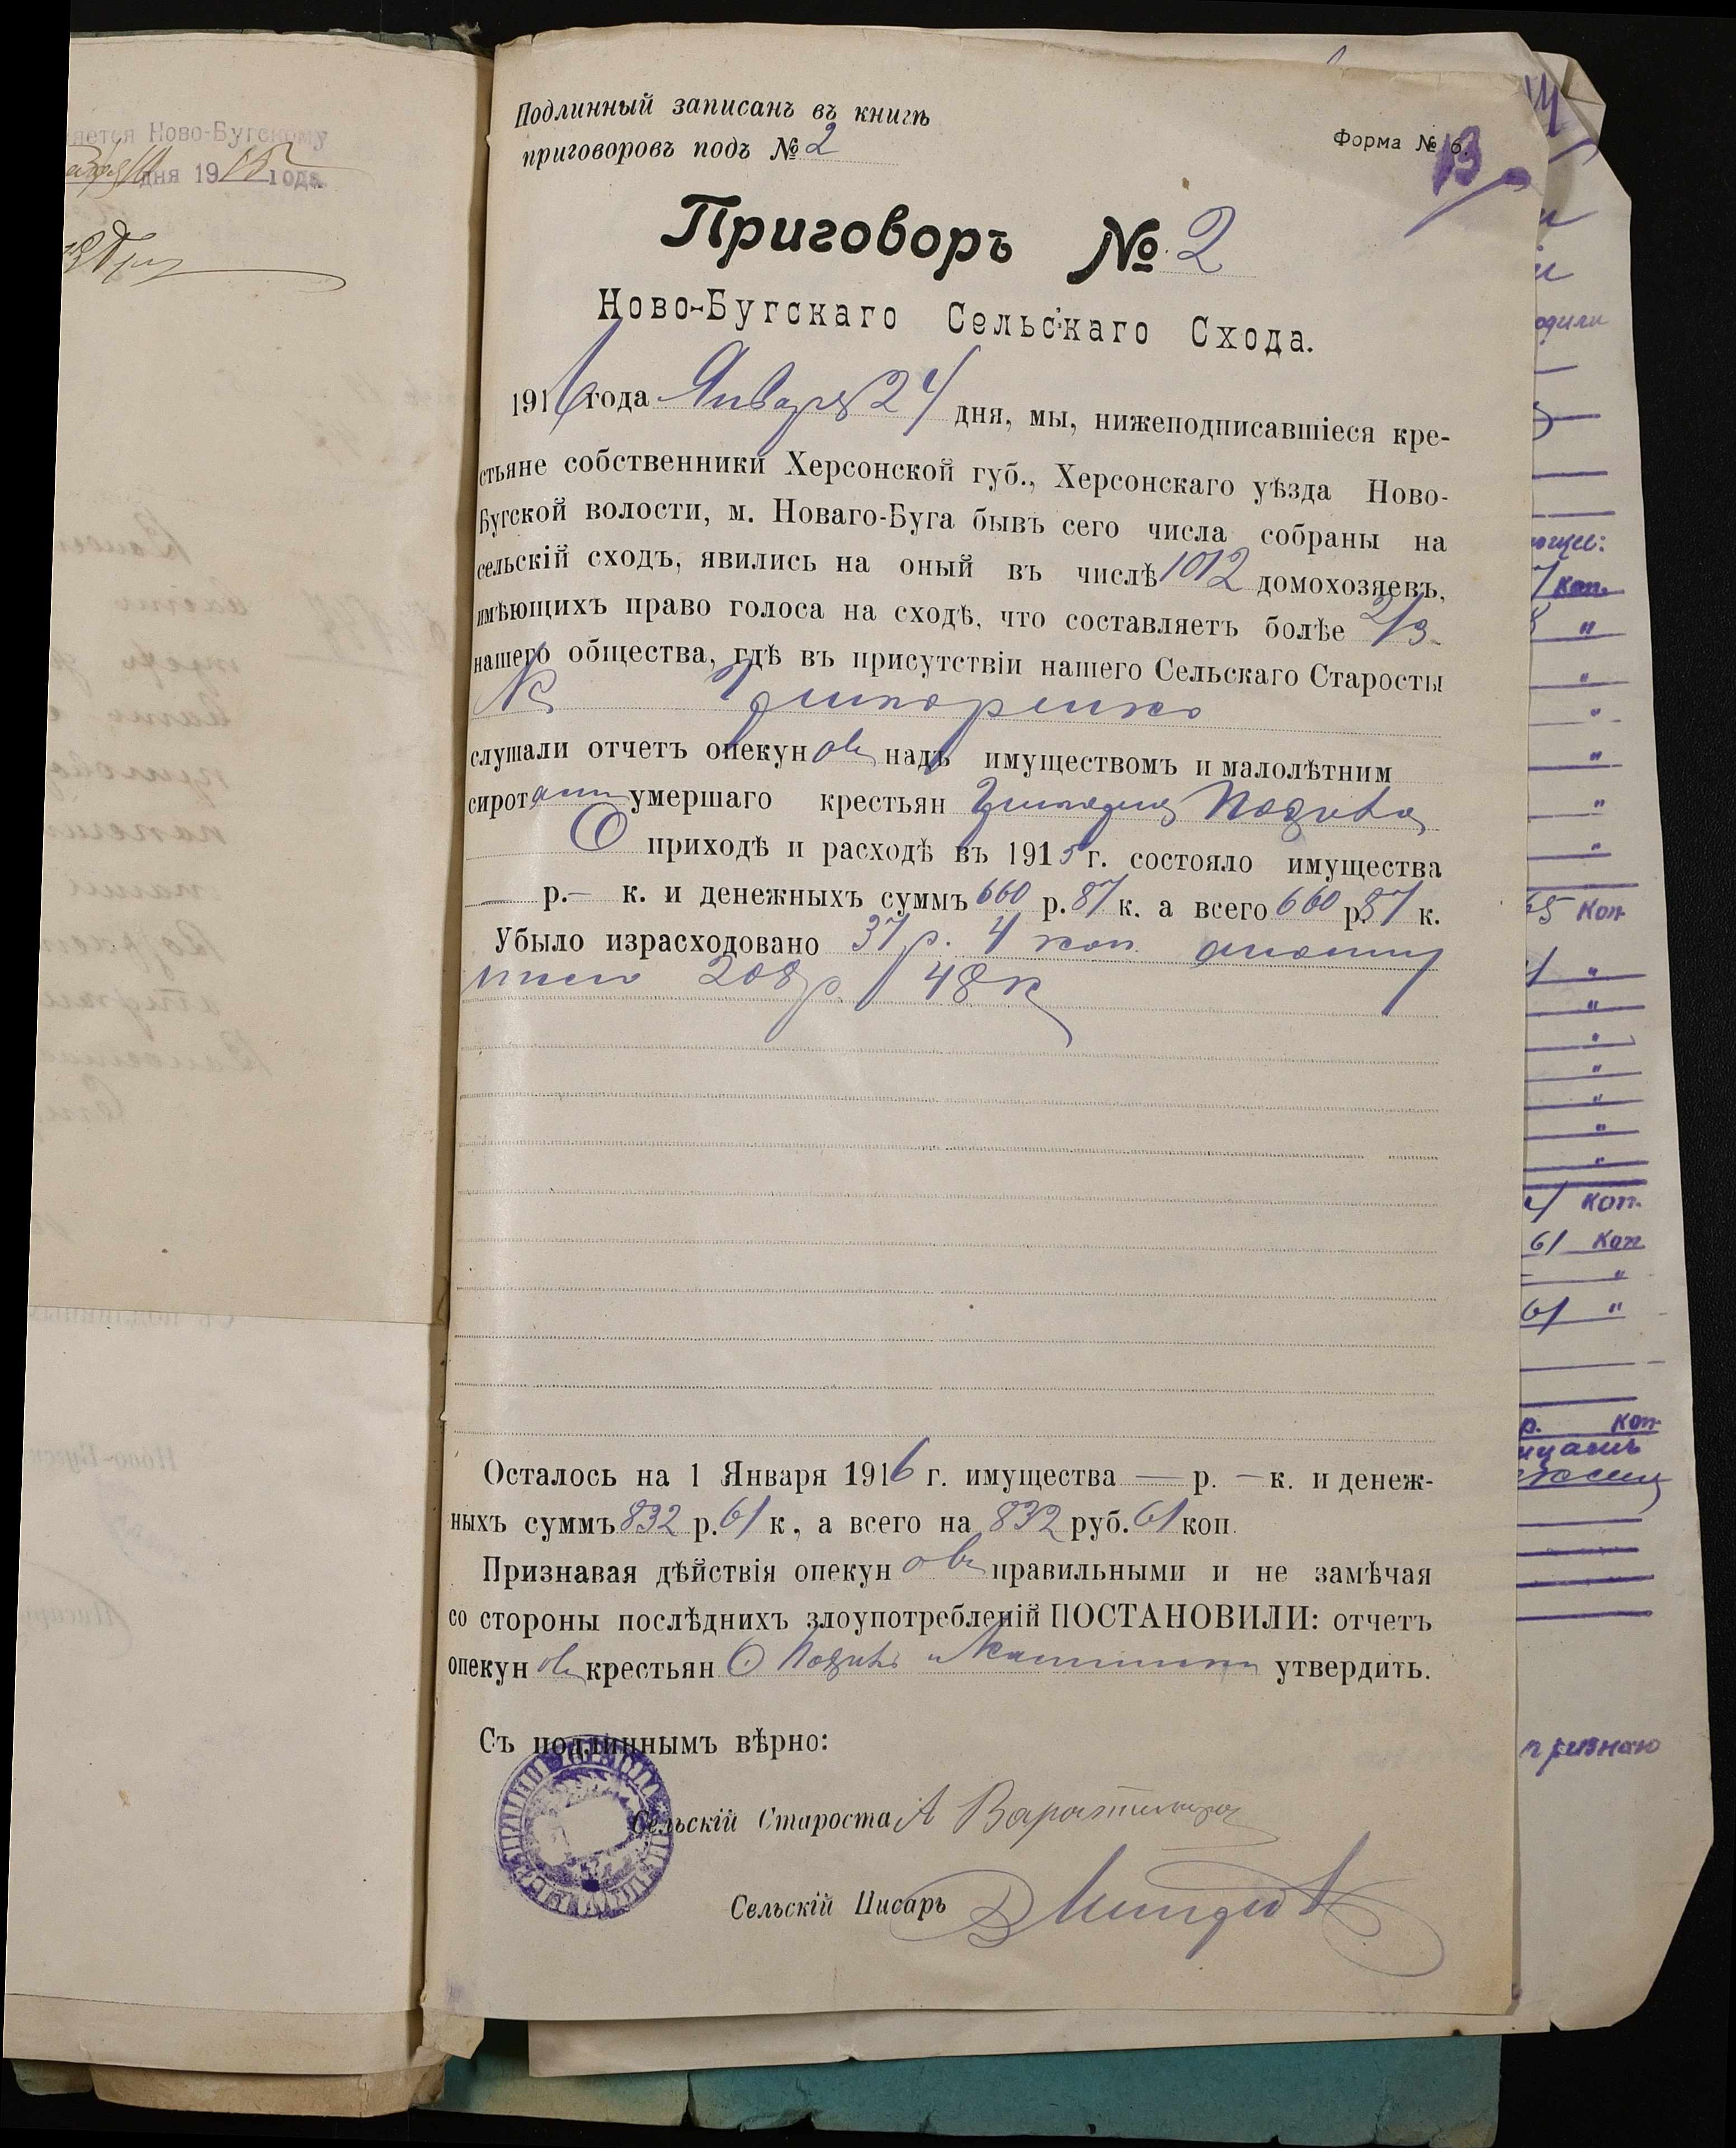 Подлинный записанъ въ книгѣ
приговоровъ подъ № 2
Форма № 6.
13
Приговоръ № 2
Ново-Бугскаго Сельскаго Схода.
1916 года Января 24 дня, мы, нижеподписавшіеся кре-
стьяне собственники Херсонской губ., Херсонскаго уѣзда Ново-
Бугской волости, м. Новаго-Буга бывъ сего числа собраны на
сельскій сходъ, явились на оный въ числѣ 1012 домохозяевъ,
имѣющихъ право голоса на сходѣ, что составляетъ болѣе 2/3
нашего общества, гдѣ въ присутствіи нашего Сельскаго Старосты
слушали отчетъ опекуновъ надъ имуществомъ и малолѣтним
сиротами умершаго крестьян
О приходѣ и расходѣ въ 1915 г. состояло имущества
— р. — к. и денежныхъ суммъ 660 р. 87 к. а всего 660 р. 87 к.
Убыло израсходовано 37 р. 4 коп.
208 р 48 к
Осталось на 1 Января 1916 г. имущества — р. — к. и денеж-
ныхъ суммъ 832 р. 61 к, а всего на 832 руб. 61 коп.
Признавая дѣйствія опекуновъ правильными и не замѣчая
со стороны послѣднихъ злоупотребленій ПОСТАНОВИЛИ: отчетъ
опекуновъ крестьян утвердить.
Съ подлиннымъ вѣрно:
Сельскій Староста А
Сельскій Писарь
Ново-Бугскому
дня 1915 года
коп.
65 Коп
4 коп.
61 Коп
61 "
р. коп
признаю